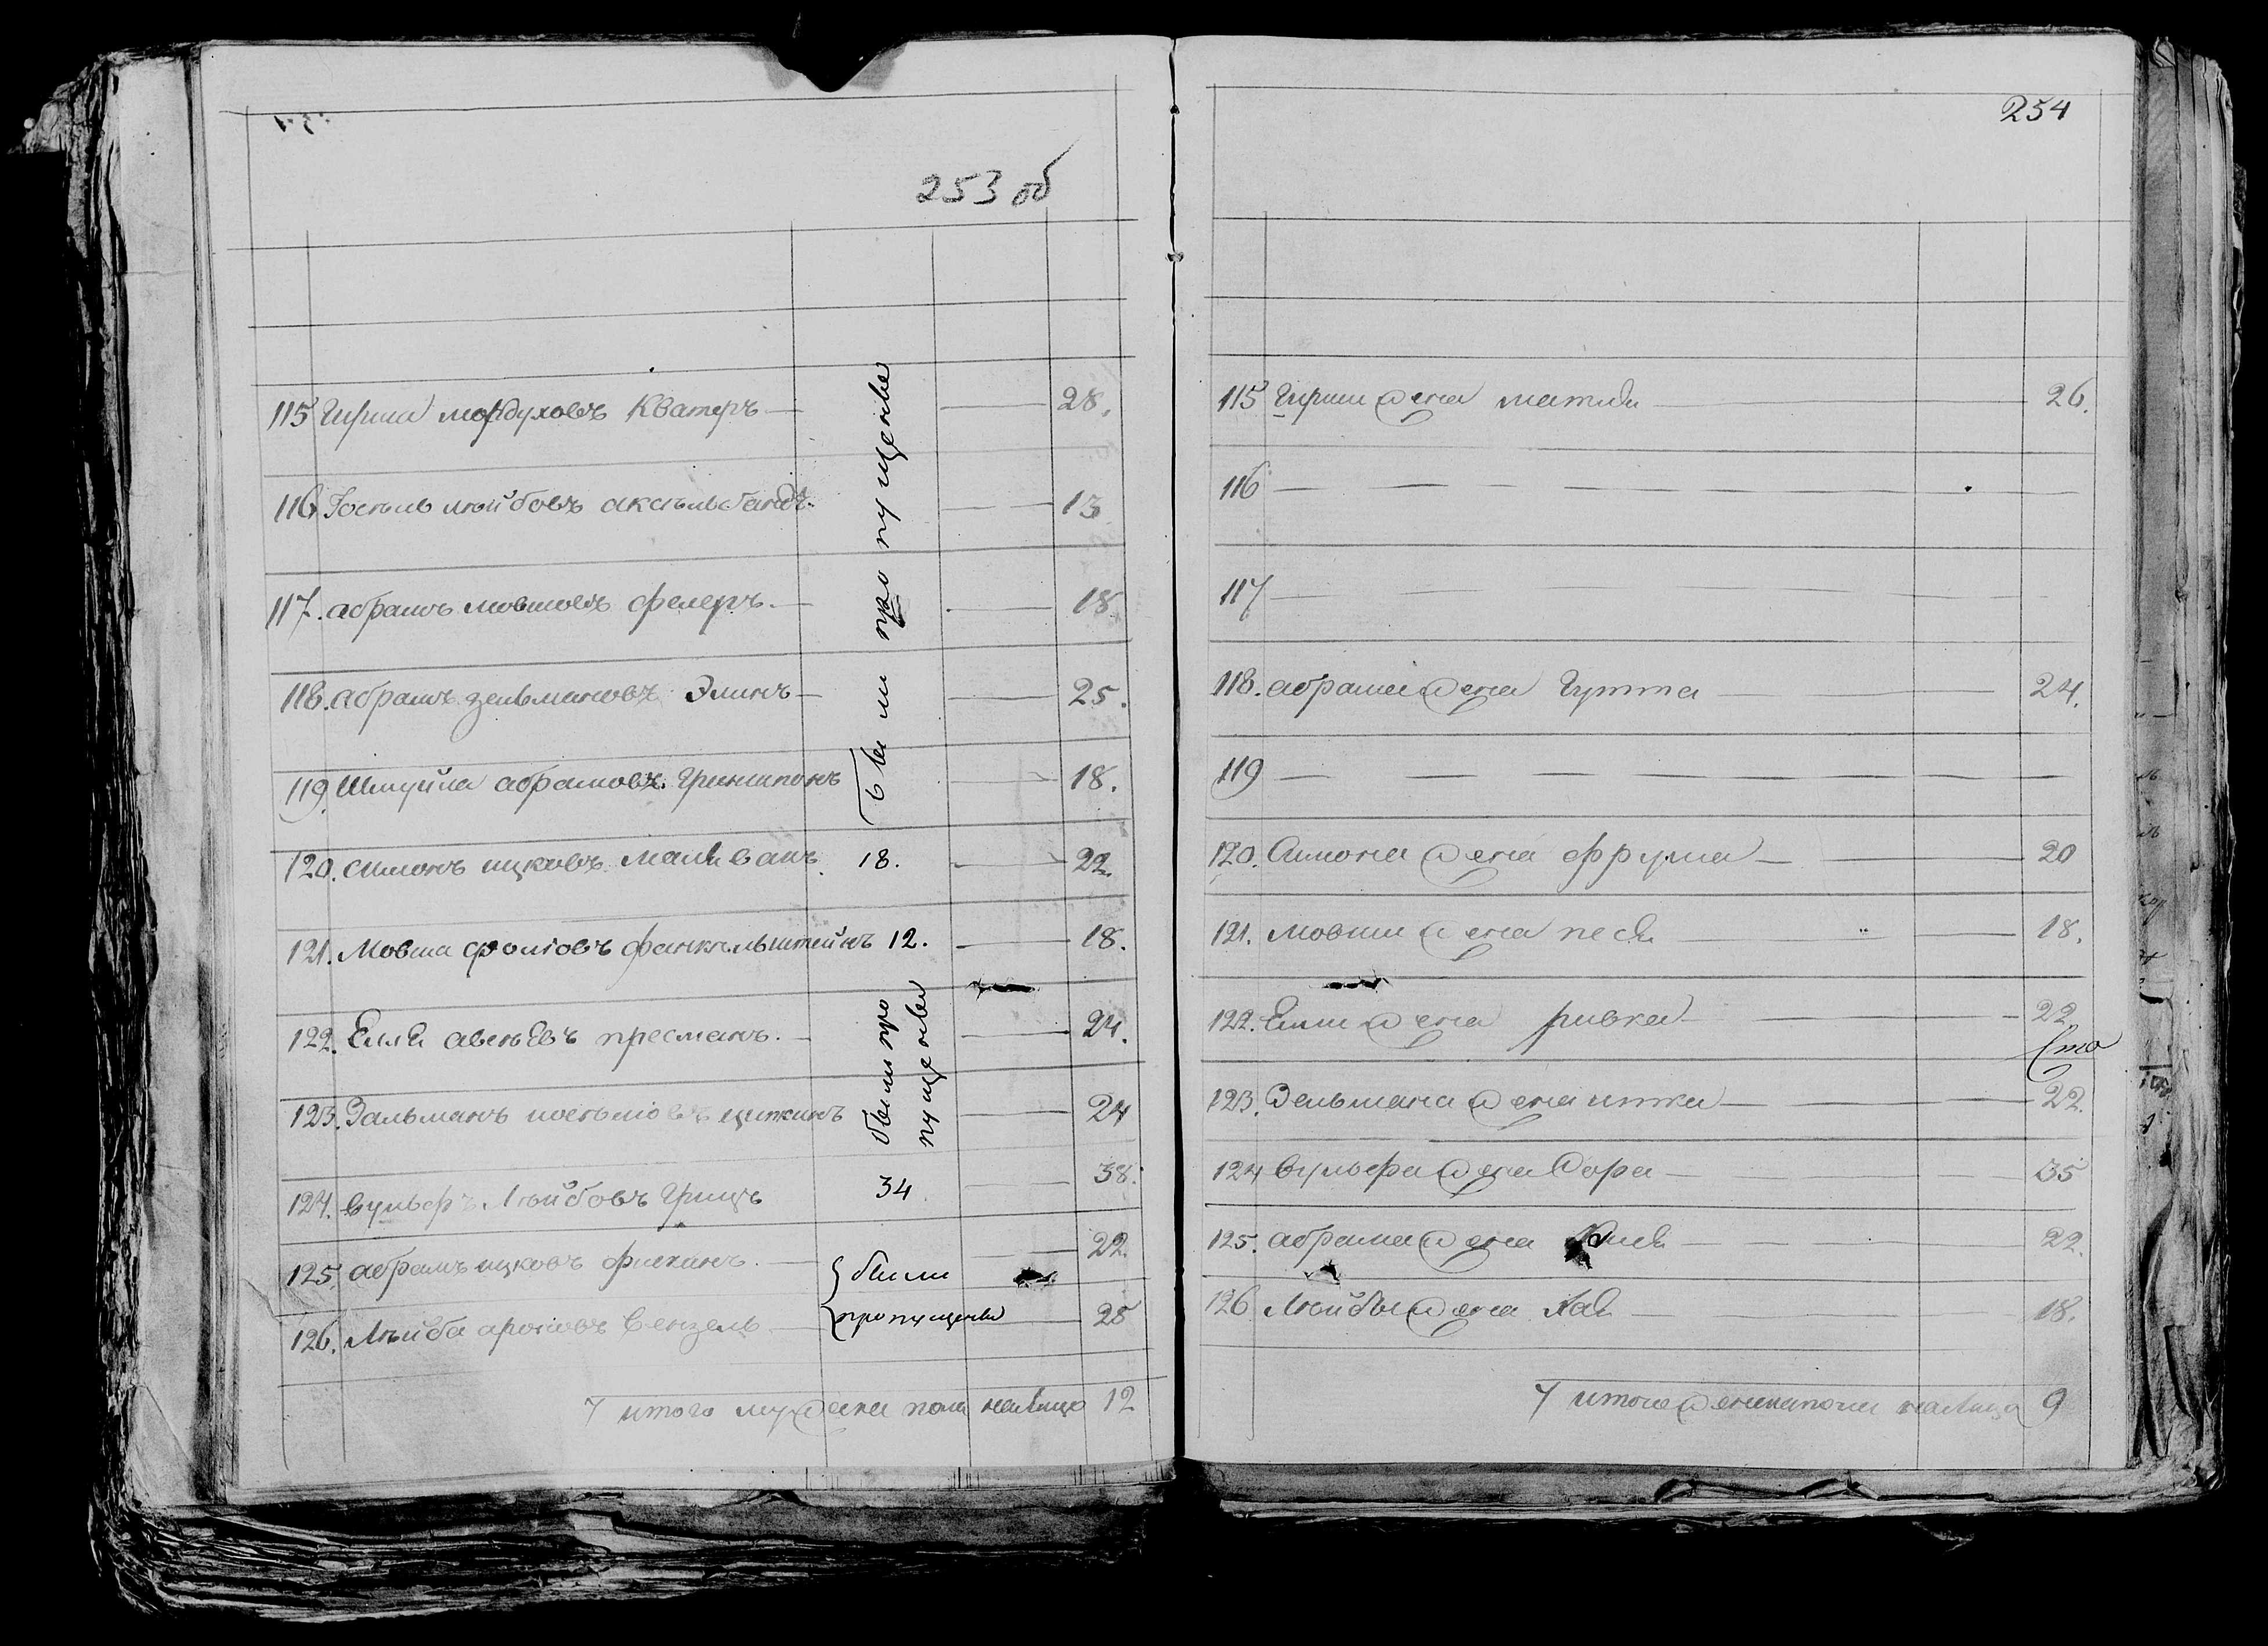 253 об
115 Гирша мордуховъ Кватеръ 28.
116 лейбовъ 13
117. абрамъ мовшовъ фелеръ. 18.
118. абрамъ зельмановъ Элинъ 25.
были пропущены
119. Шмуйла абрамовъ. 18.
120. симонъ ицковъ 18. 22.
121. Мовша финкельштейнъ 12. 18.
122. пресманъ. 24.
были про
пущены
123. Зальманъ 24
124. вульфъ Лейбовъ Грицъ 34 38.
125. абрамъ ицковъ 22.
были
126. Лейба ароновъ Вензель пропущены 25
итого мужеска пола налицо 12
254
115 Гирши жена 26.
116
117
118. абрама жена Гутта 24.
119
120. Симона жена фрума 20
121. мовши жена песя 18.
122. Елии жена ривка 22
123. Зельмана жена итка 22.
124 вульфа жена Сора 35
125. абрама жена 22.
126 Лейбы жена Хая 18.
итого женска пола налицо 9